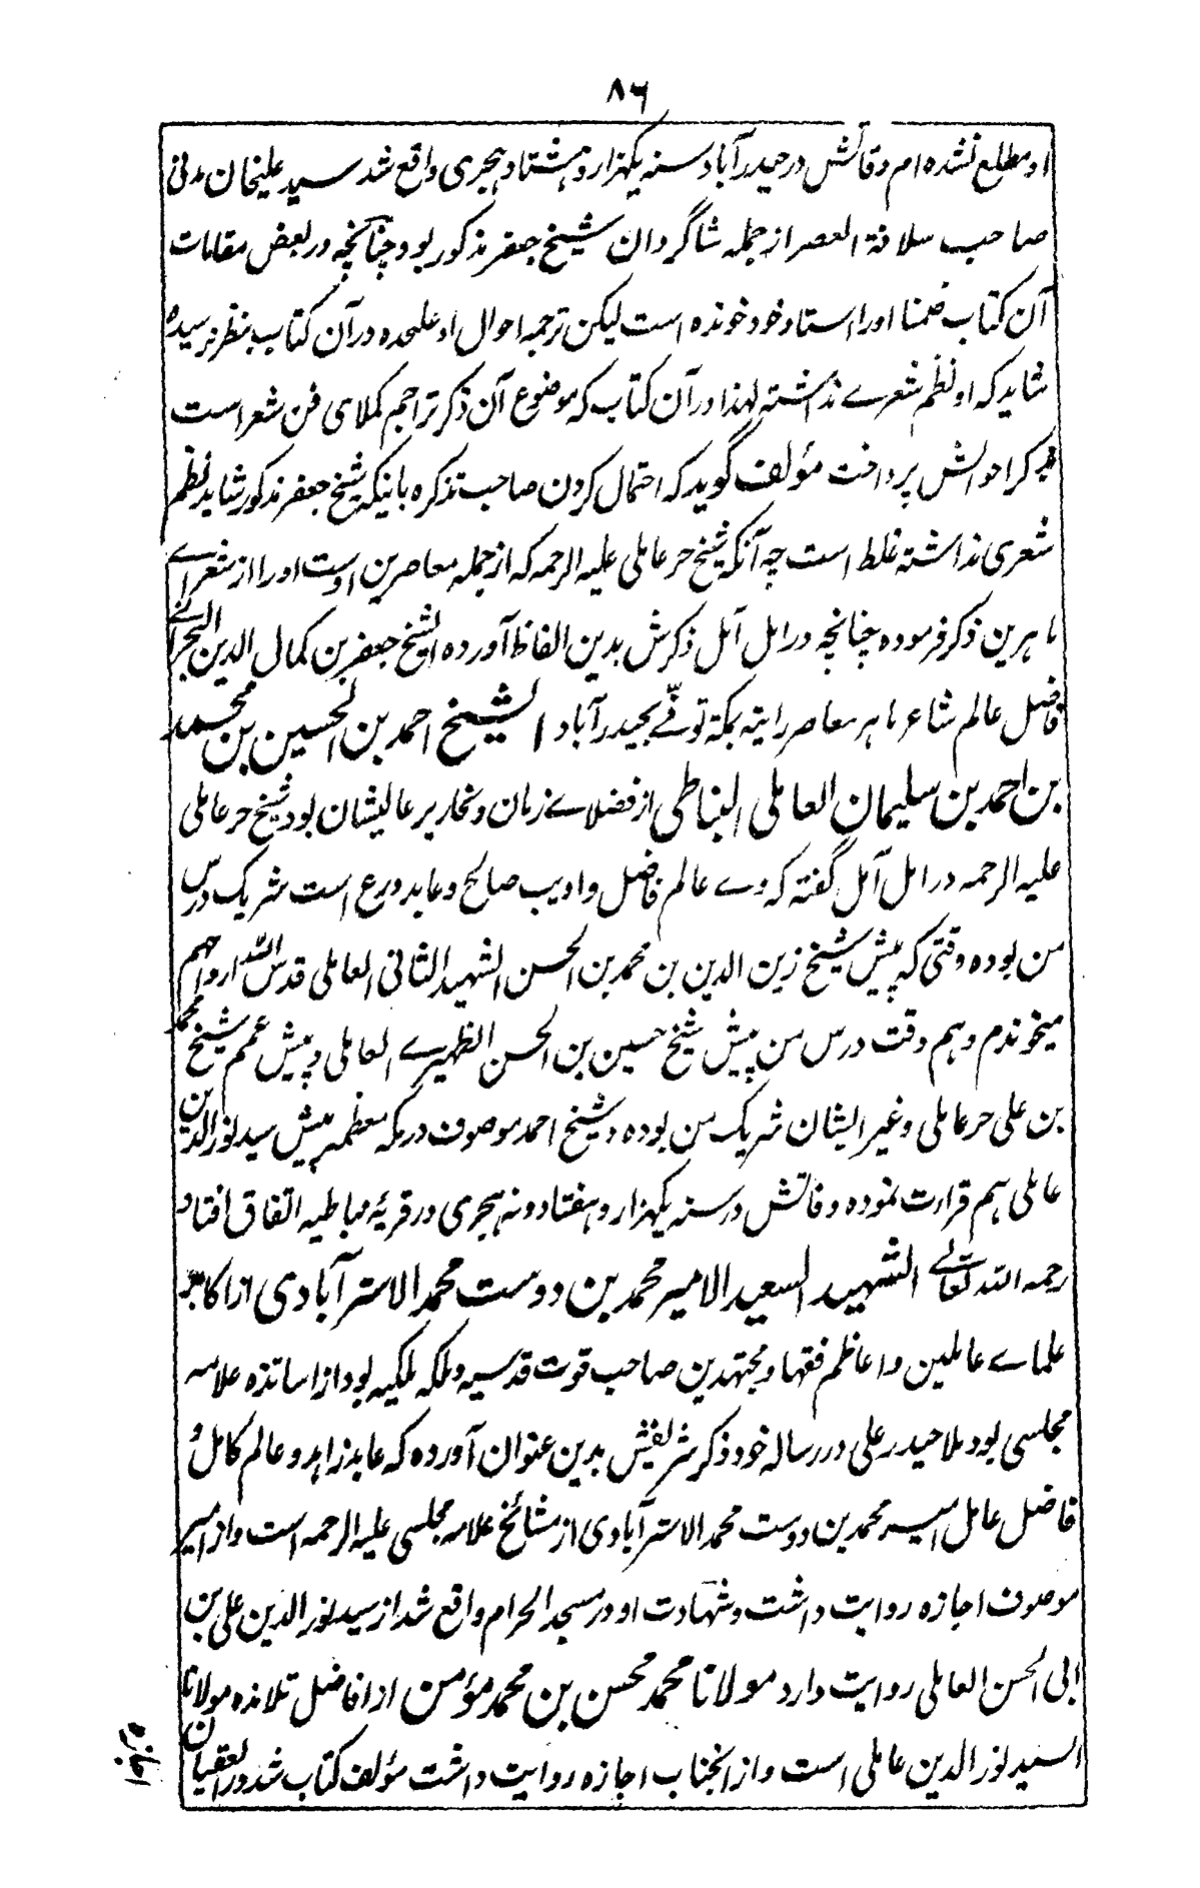 ۸۶
او مطلع نشده ام وفاتش در حیدرآباد سنه یکهزار و هشتاد هجری واقع شد سید علیخان مدنی
صاحب سلافة العصر از جمله شاگردان شیخ جعفر مذکور بود چنانچه در بعض مقامات
آن کتاب ضمنا او را استاد خود خوانده است لیکن ترجمه احوال او علحده در آن کتاب بنظر نرسیده
شاید که او نظم شعرے نداشته لهذا در آن کتاب که موضوع آن ذکر تراجم کملای فن شعر است
بذکر احوالش پرداخت مؤلف گوید که احتمال کردن صاحب تذکره باینکه شیخ جعفر مذکور شاید نظم
شعری نداشته غلط است چه آنکه شیخ حر عاملی علیه الرحمه که از جمله معاصرین اوست او را از شعراے
ماهرین ذکر فرموده چنانچه در امل آمل ذکرش بدین الفاظ آورده الشیخ جعفر بن کمال الدین البحرانے
فاضل عالم شاعر ماهر معاصر رایته بمکة توفّے بحیدرآباد الشیخ احمد بن الحسین بن محمد
بن احمد بن سلیمان العاملی النباطی از فضلاے زمان و نحاریر عالیشان بود شیخ حر عاملی
علیه الرحمه در امل آمل گفته که وے عالم فاضل و ادیب صالح و عابد ورع است شریک درس
من بوده وقتی که پیش شیخ زین الدین بن محمد بن الحسن الشهید الثانی العاملی قدس الله ارواحهم
میخوندم و هم وقت درس من پیش شیخ حسین بن الحسن الظهیرے العاملی و پیش عمم شیخ محمد
بن علی حر عاملی و غیر ایشان شریک من بوده و شیخ احمد موصوف در مکه معظمه پیش سید نور الدین
عاملی هم قراءت نموده وفاتش در سنه یکهزار و هفتاد و نه هجری در قریهٔ نباطیه اتفاق افتاد
رحمه الله تعالے الشهید السعید الامیر محمد بن دوست محمد الاسترآبادی از اکابر
علماے عاملین و اعاظم فقها و مجتهدین صاحب قوت قدسیه و ملکه ملکیه بود از اساتذه علامه
مجلسی بود ملا حیدر علی در رساله خود ذکر شریفش بدین عنوان آورده که عابد زاهد و عالم کامل و
فاضل عامل امیر محمد بن دوست محمد الاسترآبادی از مشائخ علامه مجلسی علیه الرحمه است و از امیر
موصوف اجازه روایت داشت و شهادت او در مسجد الحرام واقع شد از سید نور الدین علی بن
ابی الحسن العاملی روایت دارد مولانا محمد محسن بن محمد مؤمن از افاضل تلامذه مولانا
السید نور الدین عاملی است و از آنجناب اجازه روایت داشت مؤلف کتاب شذور العقیان
اجازه